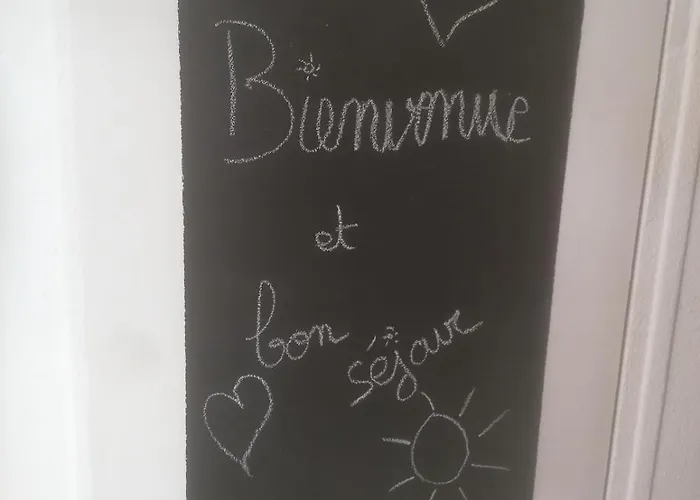 Bienvenue
et
bon séjour